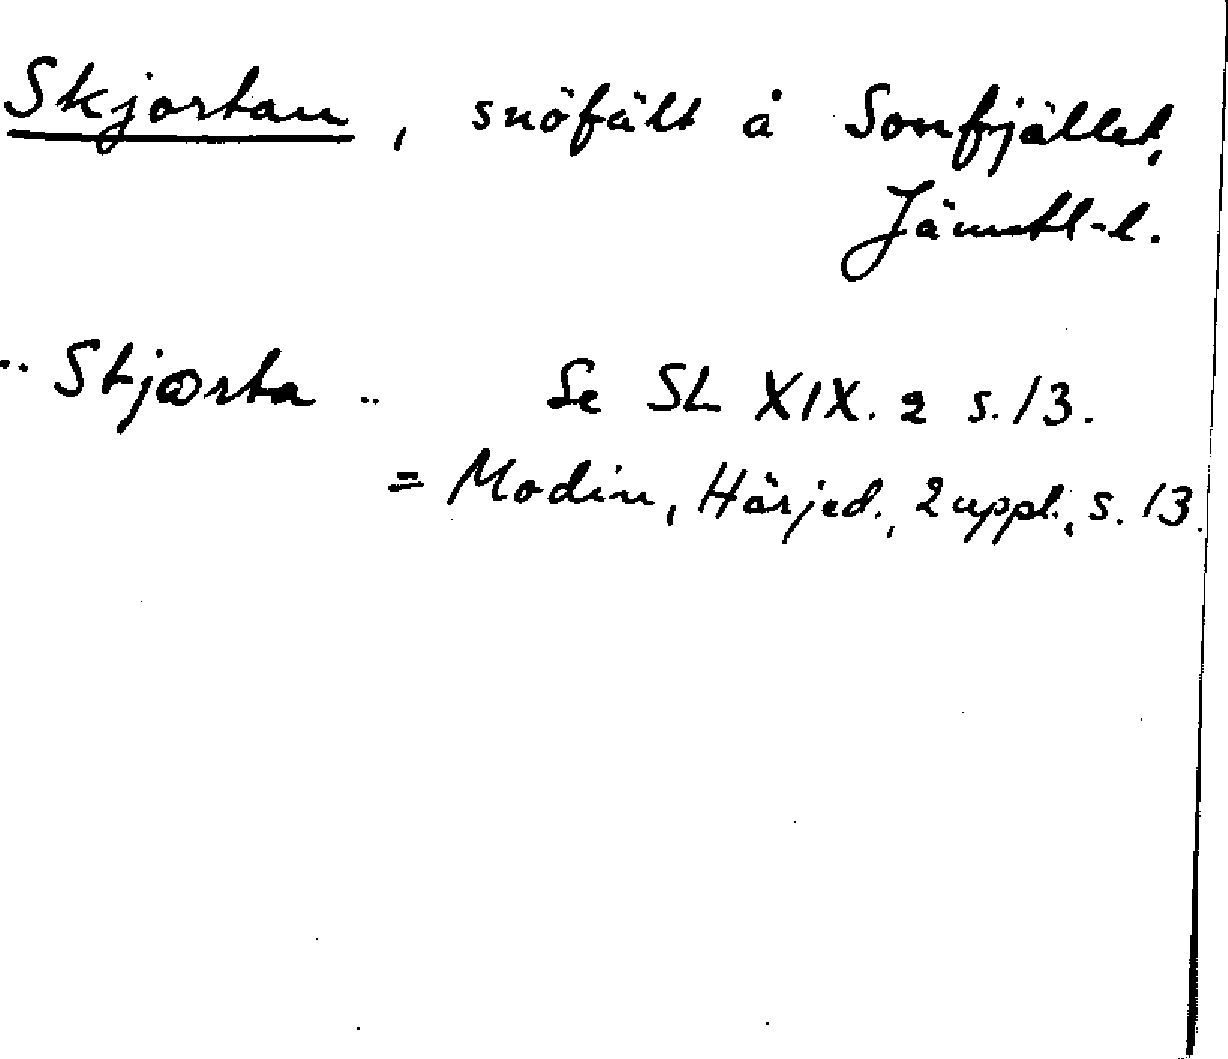 Skjortan, snöfält å Sonfjället,
Jämtl-l.
.. Stjærta .. Se SL XIX. 2 s. 13.
= Modin, Härjed., 2 uppl., s. 13.